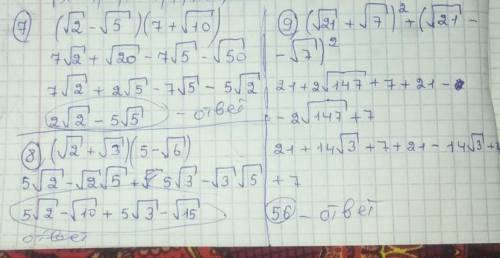 7) (√2 - √5)(7 + √10)
7√2 + √20 - 7√5 - √50
7√2 + 2√5 - 7√5 - 5√2
2√2 - 5√5 - ответ
8) (√2 + √3)(5 - √6)
5√2 - √2√5 + 5√3 - √3√5
5√2 - √10 + 5√3 - √15
ответ
9) (√21 + √7)² + (√21 -
- √7)²
21 + 2√147 + 7 + 21 -
- 2√147 + 7
21 + 14√3 + 7 + 21 - 14√3 + 7
+ 7
56 - ответ